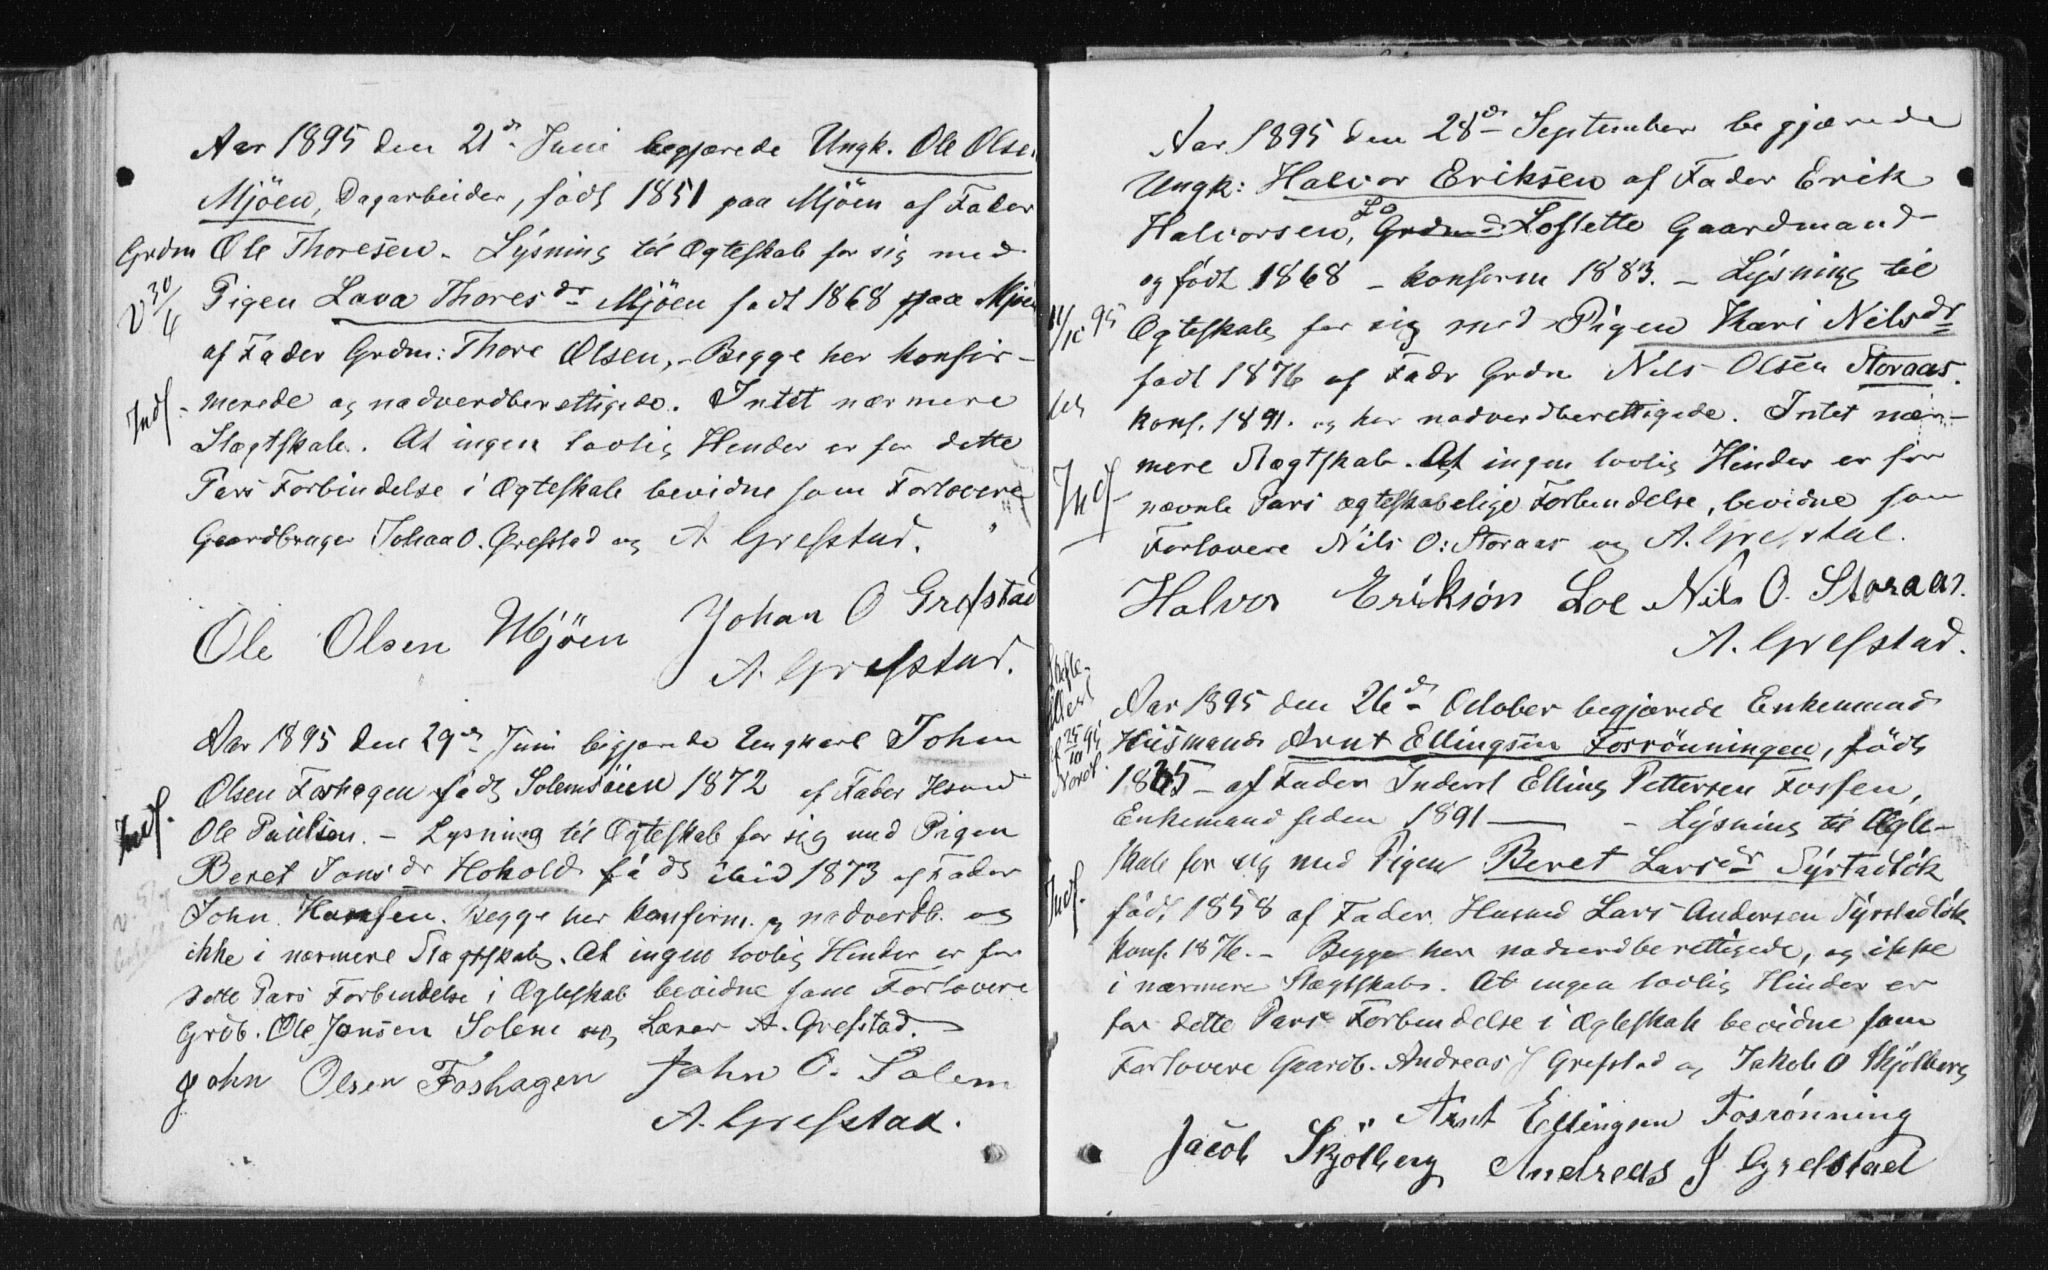 Aar 1895 den 21de Juni begjærede Ungk. Ole Olsen
Mjöen, Dagarbeider, födt 1851 paa Mjöen af Fader
Grdm Ole Thoresen. Lysning til Ægteskab for sig med
V 30/4
Pigen Lava Thoresdr Mjöen födt 1868 paa Mjöen
af Fader Grdm: Thore Olsen, - Begge her konfir-
Indf. merede og nadverdberettigede. Intet nærmere
Slægtskab. At ingen lovlig Hinder er for dette
Pars Forbindelse i Ægteskab bevidne som Forlovere
Gaardbruger Johan O. Grefstad og A Grefstad.
Ole Olsen Mjöen Johan O Grefstad
A. Grefstad.
Aar 1895 den 29de Juni begjærede Ungkarl John
Olsen Foshagen födt Solemsöien 1872 af Fader Husmd
Indf.
Ole Paulsen. - Lysning til Ægteskab for sig med Pigen
Beret Jonsdr Hokold födt ibid 1873 af Fader
John Hansen. Begge her konfirm. og nadverdb. og
ikke i nærmere Slægtskab. At ingen lovlig Hinder er for
dette Pars Forbindelse i Ægteskab bevidne som Forlovere
Grdb. Ole Jonsen Solem og Lærer A. Grefstad.
John Olsen Foshagen John O. Solem
A. Grefstad.
Aar 1895 den 28de September begjærede
Ungk: Halvor Eriksen af Fader Erik
Halvorsen, Lo Grdmd Loslette Gaardmand
og födt 1868 - konform 1883. - Lysning til
Ægteskab for sig med Pigen Kari Nilsdr
födt 1876 af Fadr Grdm Nils Olsen Storaas.
konf. 1891. og her nadverdberettigede. Intet nær-
mere Slægtskab. At ingen lovlig Hinder er for
Indf
nævnte Pars ægteskabelige Forbindelse, bevidne som
Forlovere Nils O: Storaas og A. Grefstad.
Halvor Erikson Loe Nils O. Storaas.
A. Grefstad.
Aar 1895 den 26de October begjærede Enkemand
Husmand Arnt Ellingsen Forrönningen, födt
1865 - af Fader Inderst Elling Pettersen Fossen,
Enkemand siden 1891 - Lysning til Ægte-
skab for sig med Pigen Beret Larsdr Syrstadlök
Indf.
födt 1858 af Fader Husmd Lars Andersen Syrstadlök
konf. 1876. - Begge her nadverdberettigede, og ikke
i nærmere Slægtskab. At ingen lovlig Hinder er
for dette Pars Forbindelse i Ægteskab bevidne som
Forlovere Gaardb. Andreas J Grefstad og Jakob O Skjölberg
Arnt Ellingsen Fosrönning
Jacob Skjölberg Andreas J Grefstad